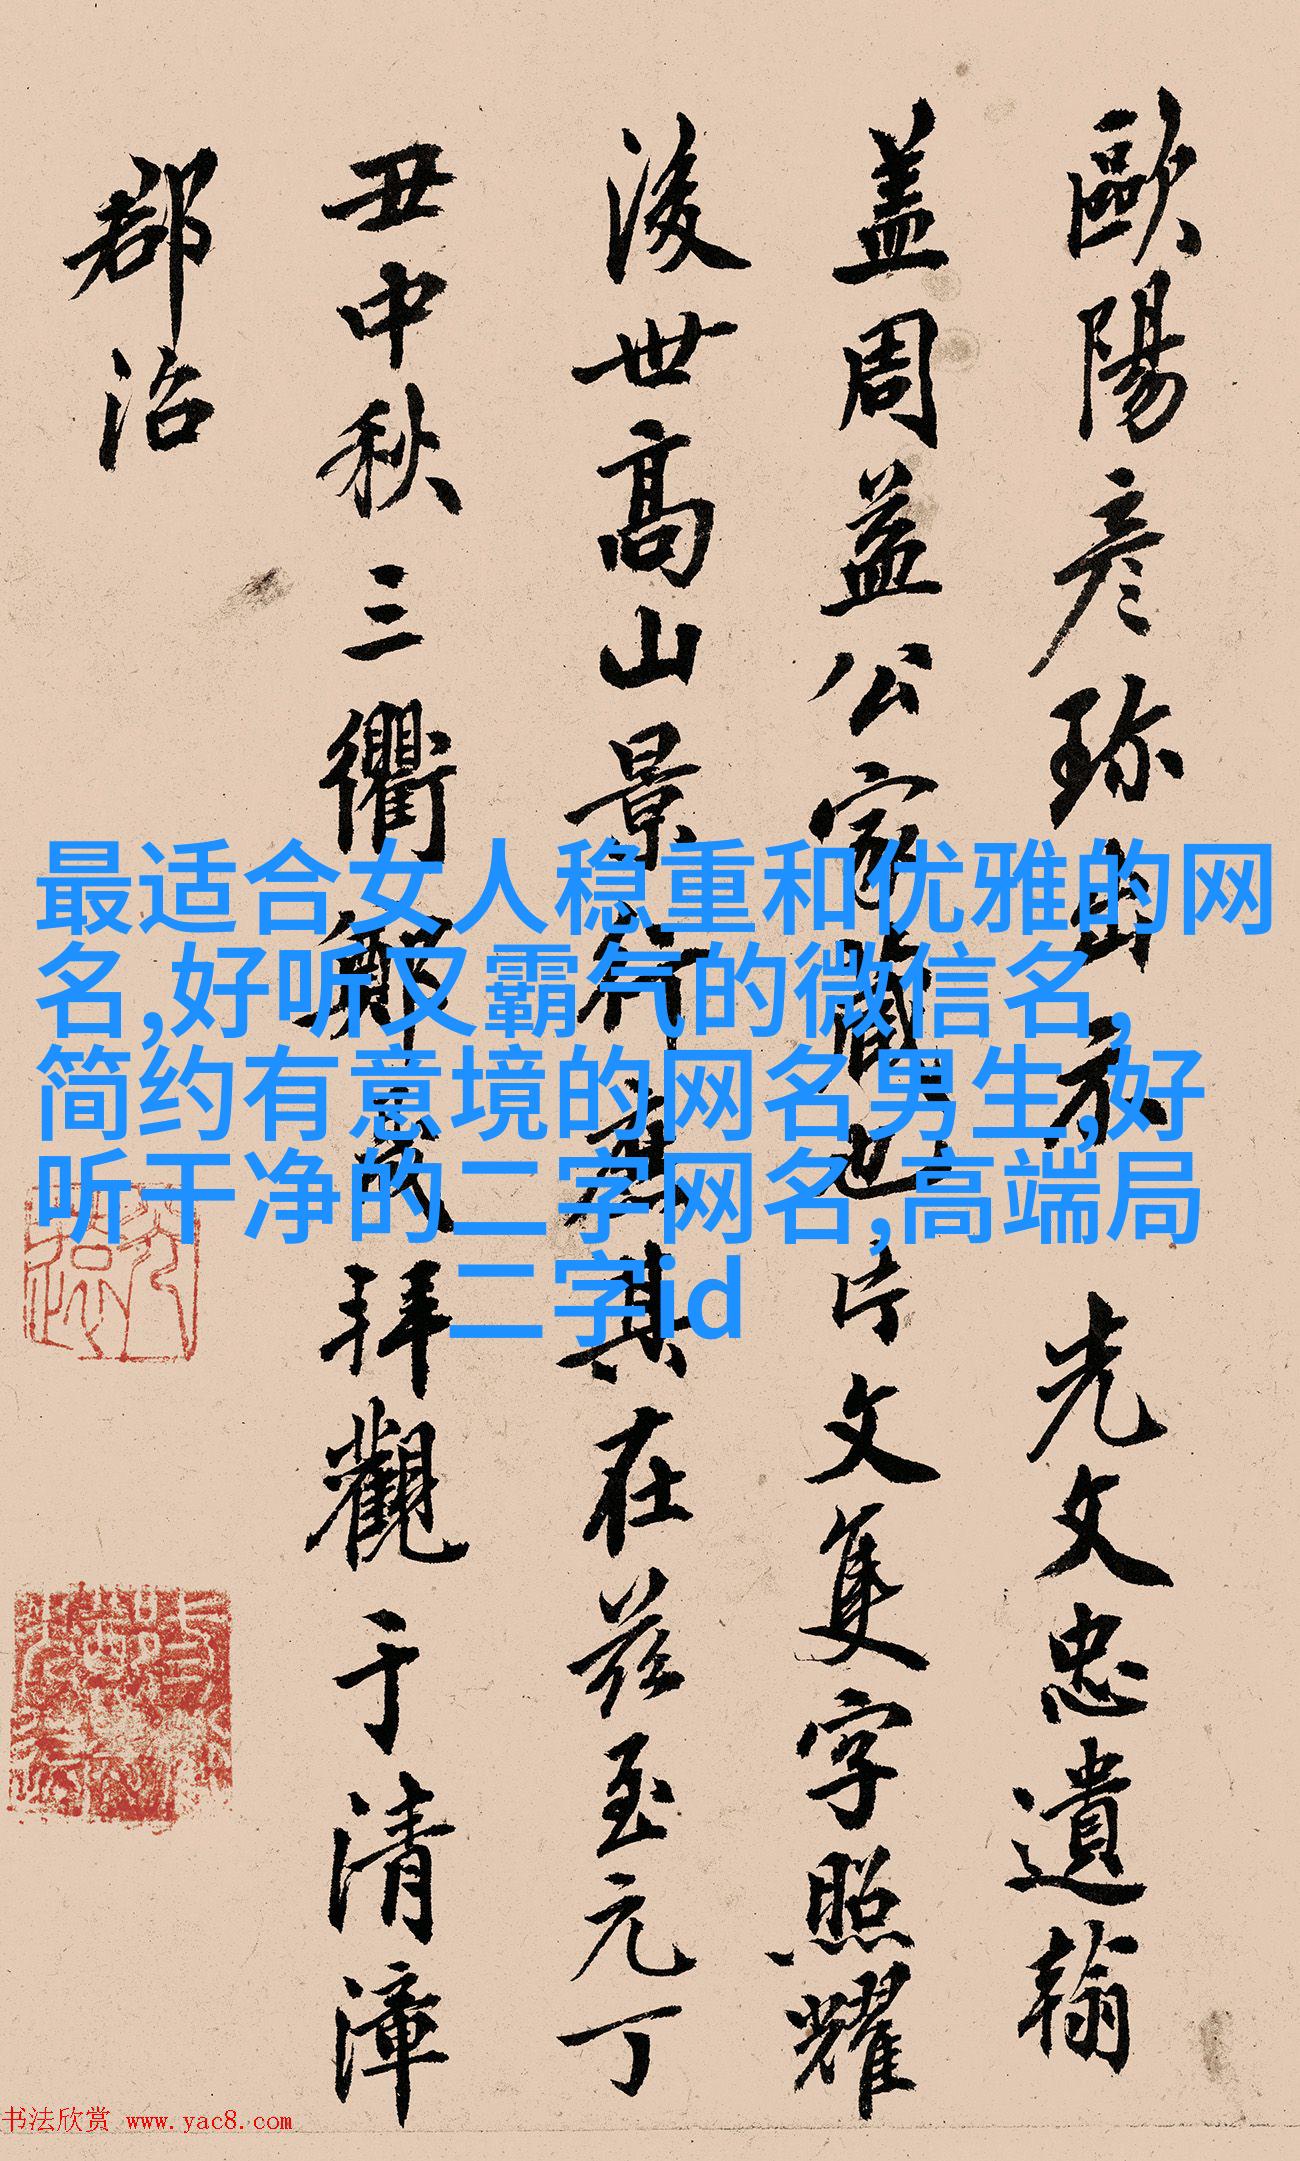 歐陽彦珍出示 先文忠遺翰
盖周益公家也片文隻字照耀
後世高山景行其在兹至元丁
丑中秋三衢鄭拜觀于清漳
郡治
最适合女人稳重和优雅的网
名,好听又霸气的微信名,
简约有意境的网名男生,好
听干净的二字网名,高端局
二字id
书法欣赏 www.yac8.com